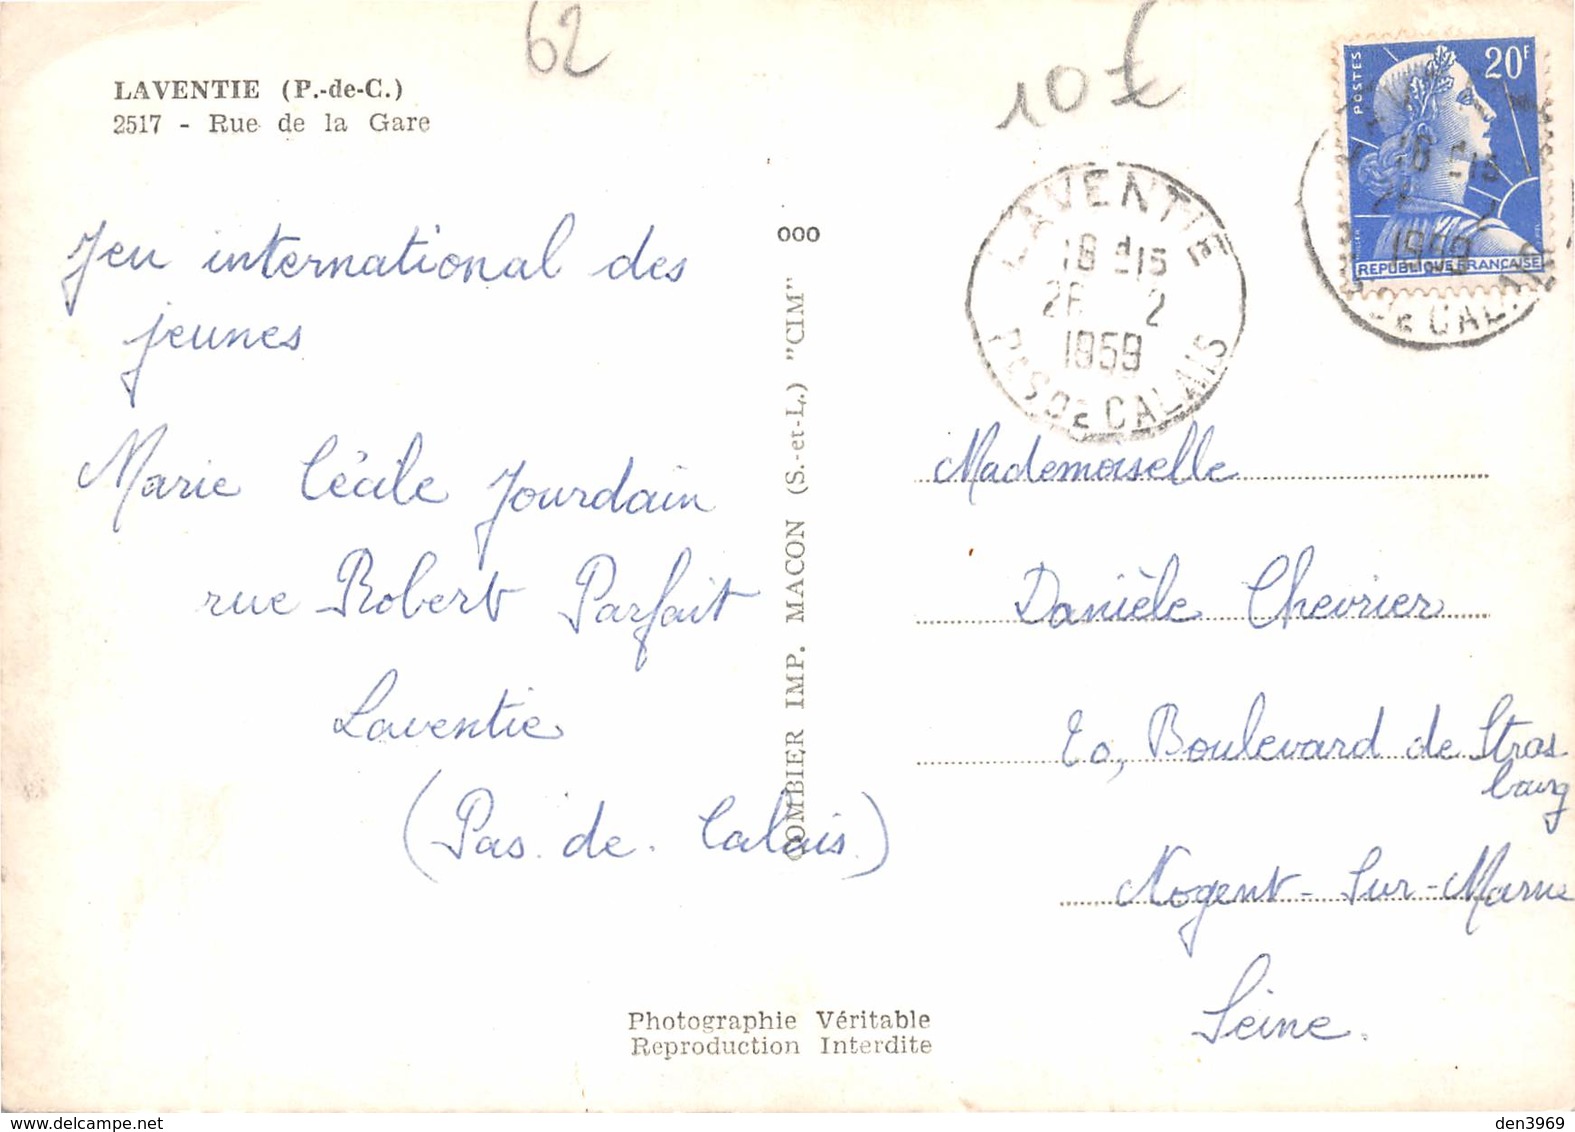 62
10 €
LAVENTIE (P.-de-C.)
2517 - Rue de la Gare
POSTES
20F
REPUBLIQUE FRANÇAISE
LAVENTIE
18 H 15
26 2
1959
PAS DE CALAIS
1959
DE CALAIS
Jeu international des
jeunes
Marie Cécile Jourdain
rue Robert Parfait
Laventie
(Pas. de. Calais.)
000
COMBIER IMP. MACON (S.-et-L.) "CIM"
Mademoiselle
Danièle Chevrier
Boulevard de Stras
bourg
Nogent-Sur-Marne
Seine.
Photographie Véritable
Reproduction Interdite
den3969